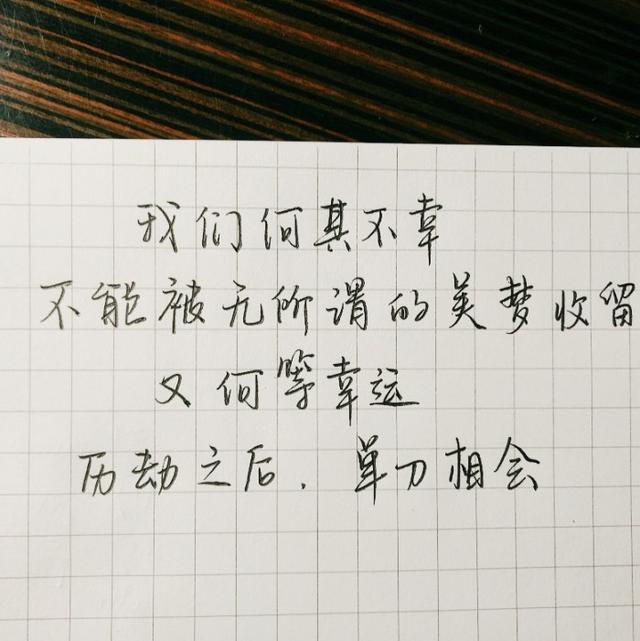 我们何其不幸
不能被无所谓的美梦收留
又何等幸运
历劫之后.单刀相会